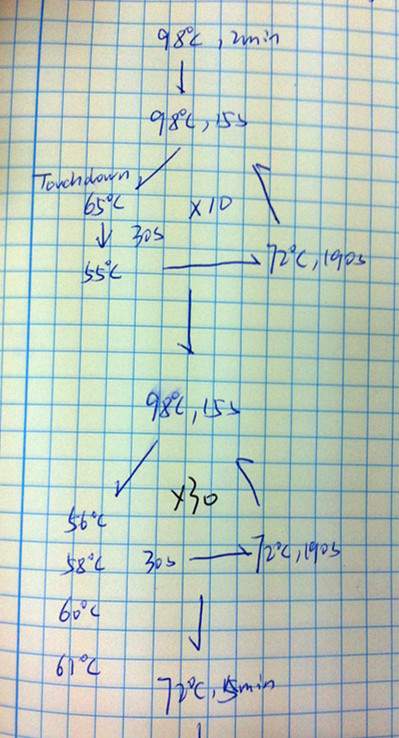 98°C, 2min
98°C, 15s
Touchdown
65°C
X10
30s
55°C
72°C, 190s
98°C, 15s
X30
56°C
58°C 30s 72°C, 190s
60°C
61°C
72°C, 15min